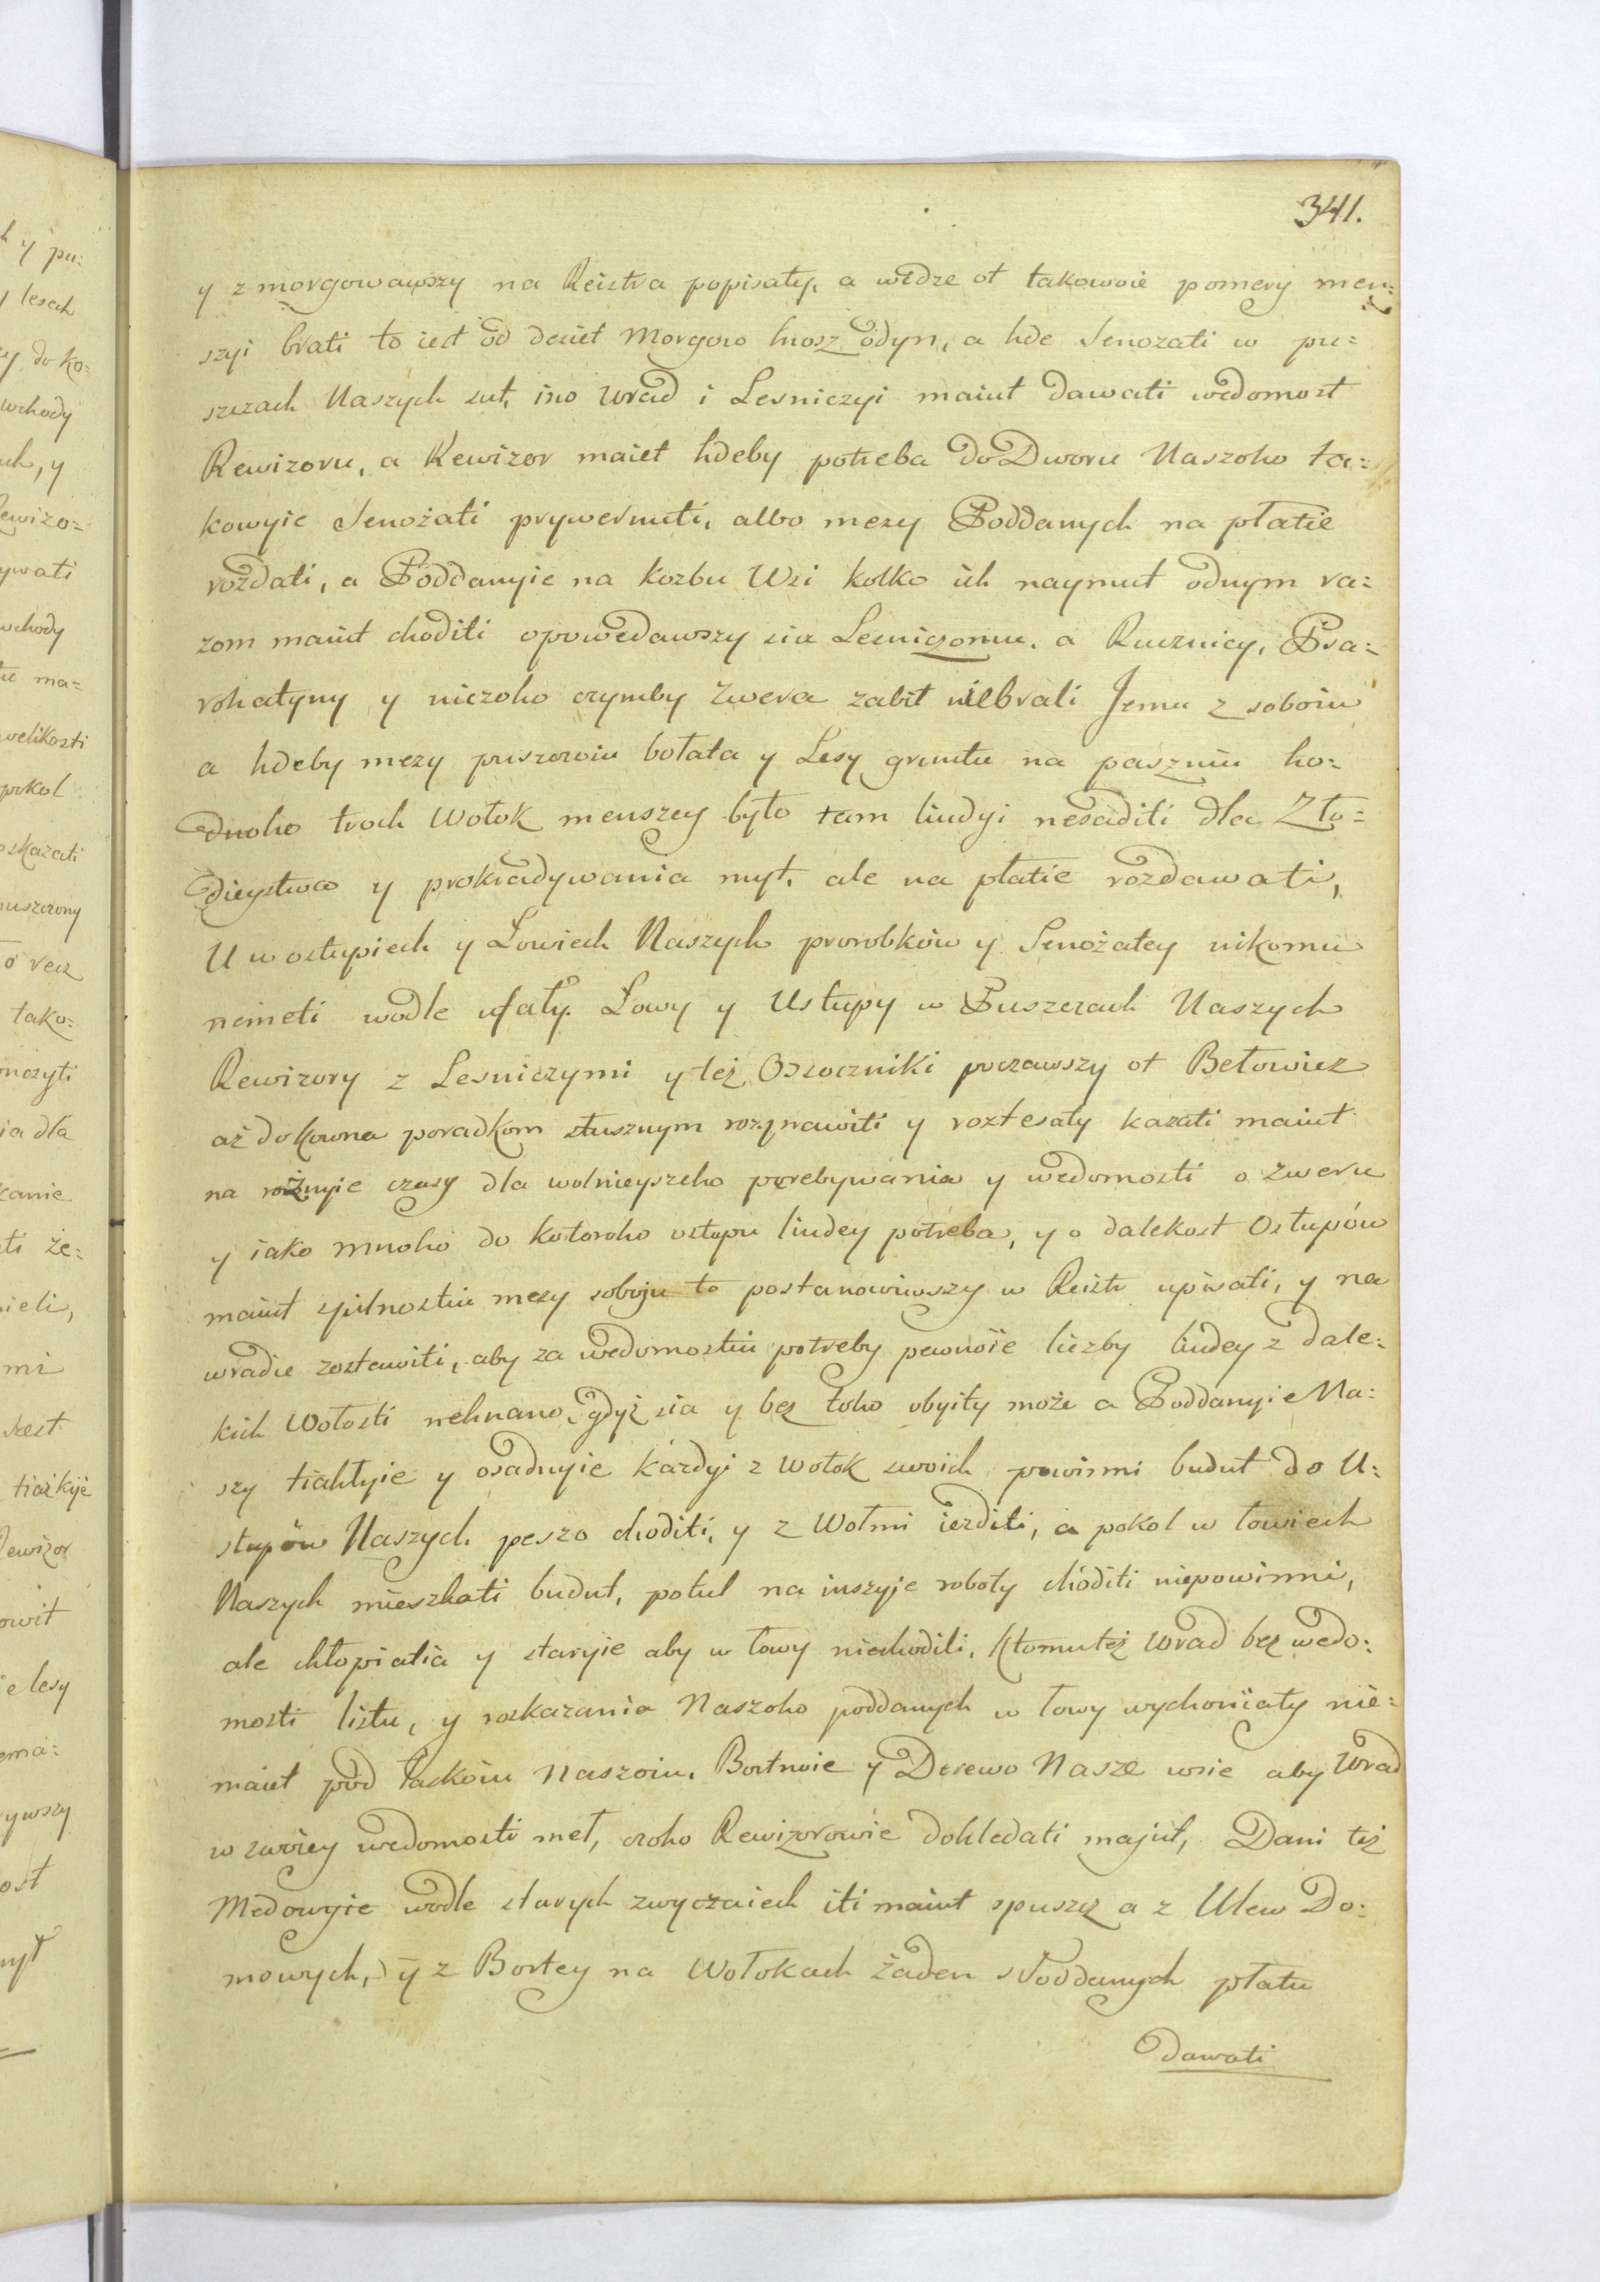 341.
y zmorgowawszy na Reistra popisaty, a wedze ot takowoie pomery men:
szyi brati to iest od desiet Morgow hrosz odyn, a hde Senozati w pu:
szczach Naszych sut, ino Wrad i Lesniczyi maiut dawati wedomost
Rewizoru, a Rewizor maiet hdeby potreba do Dworu Naszoho ta:
kowyie Senożati prywernuti, albo mezy Poddanych na płatie
rozdati, a Poddanyie na Kozbu Wsi kolko ich naymut odnym ra:
zom maiut choditi opowedawszy sia Lesniczomu, a Rucznicy, Psa:
rohatyny y niczoho czymby Zwera zabit niebrali Jemu z soboiu
a hdeby mezy puszczoiu bołata y Lesy gruntu na paszniu ho:
dnoho troch Wołok menszey było tam liudyi nesaditi dla Zło:
dieystwa y prokradywania myt, ale na płatie rozdawati,
U w ostupiech y Łowiech Naszych prorobków y Senożatey nikomu
nemeti wodle ufały. Łowy y Ustupy w Puszczach Naszych
Rewizory z Lesniczymi y też Osoczniki poczawszy ot Bełowicz
aż do Kowna poradkom słusznym rozprawiti y roztesaty kazati maiut
na rożnyie czasy dla wolnieyszeho perebywania y wedomosti o zweru
y iako mnoho do kotoroho ostupu liudey potreba, y o dalekost Ostupów
maiut zpilnostiu mezy soboju to postanowiwszy w Reistr upisati, y na
wradie zostawiti, aby za wedomostiu potreby pewnoie liczby liudey z dale:
kich Wołosti nehnano, gdyż sia y bez toho obyity może a Poddanyie Na:
szy tiahłyie y osadnyie każdyi z wołok swoich powinni budut do U:
stupów Naszych peszo choditi, y z Wołmi iezditi, a pokol w łowiech
Naszych mieszkati budut, potul na inszyje roboty choditi niepowinni,
ale chłopiatia y staryie aby w łowy niechodili, Ktomu też Wrad bez wedo:
mosti listu, y roskazania Naszoho poddanych w łowy wychoniaty nie:
maiut pod łaskoiu Naszoiu. Bortnoie y Derewo Nasze wsie aby Wrad
w swoiey wedomosti met, czoho Rewizorowie dohledati majut, Dani też
Medowyie wodle starych zwyczaiech iti maiut spuszcz a z Ulew Do:
mowych, y z Bortey na Wołokach żaden s Poddanych płatu
dawati